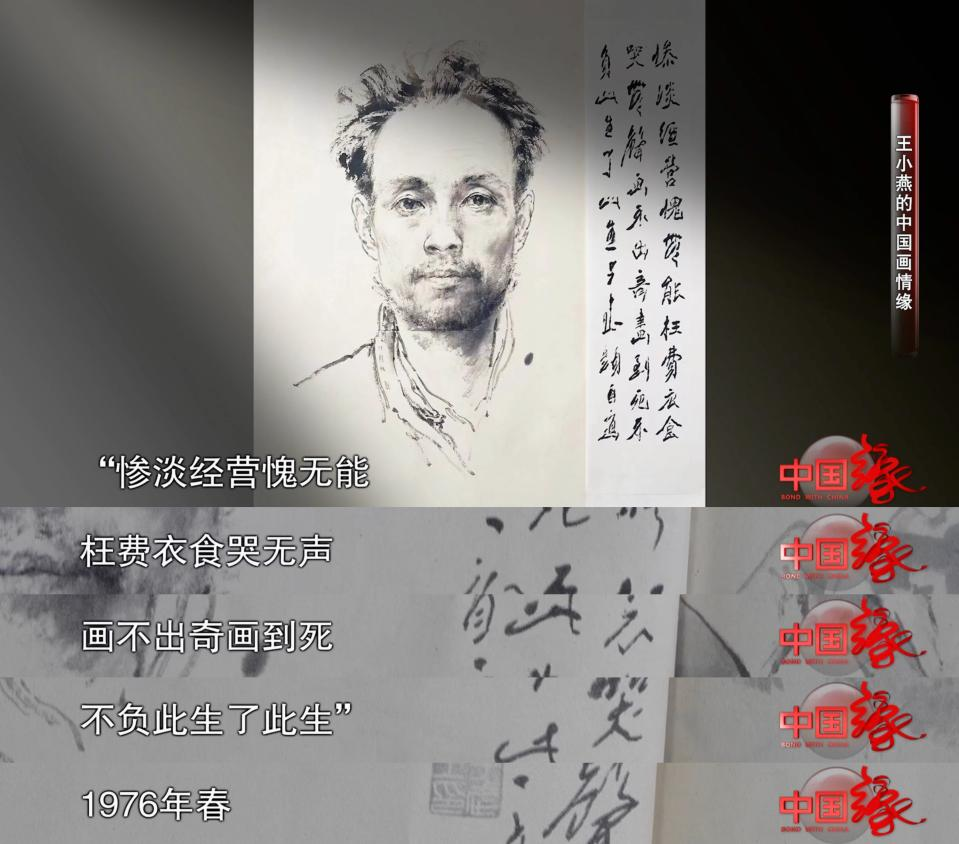 惨淡經营愧無能枉費衣食
哭無聲画不出奇畫到死不
負此生了此生 題自寫
王小燕的中国画情缘
“惨淡经营愧无能
中国缘
BOND WITH CHINA
枉费衣食哭无声
中国缘
BOND WITH CHINA
画不出奇画到死
中国缘
BOND WITH CHINA
不负此生了此生”
中国缘
BOND WITH CHINA
1976年春
中国缘
BOND WITH CHINA